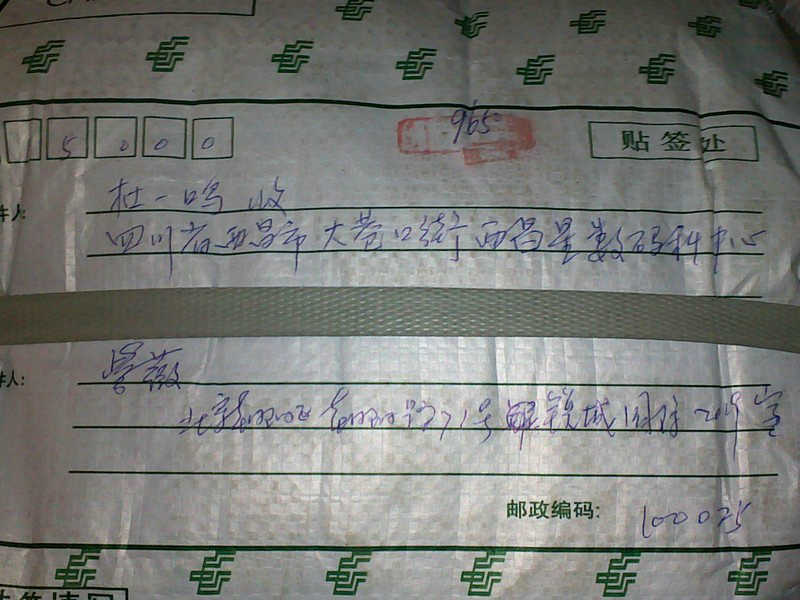 5000
965
贴签处
件人:
杜一鸣 收
四川省西昌市大巷口街西昌星数码科中心
件人:
北京朝阳区朝阳路71号 城国际 室
邮政编码: 100025